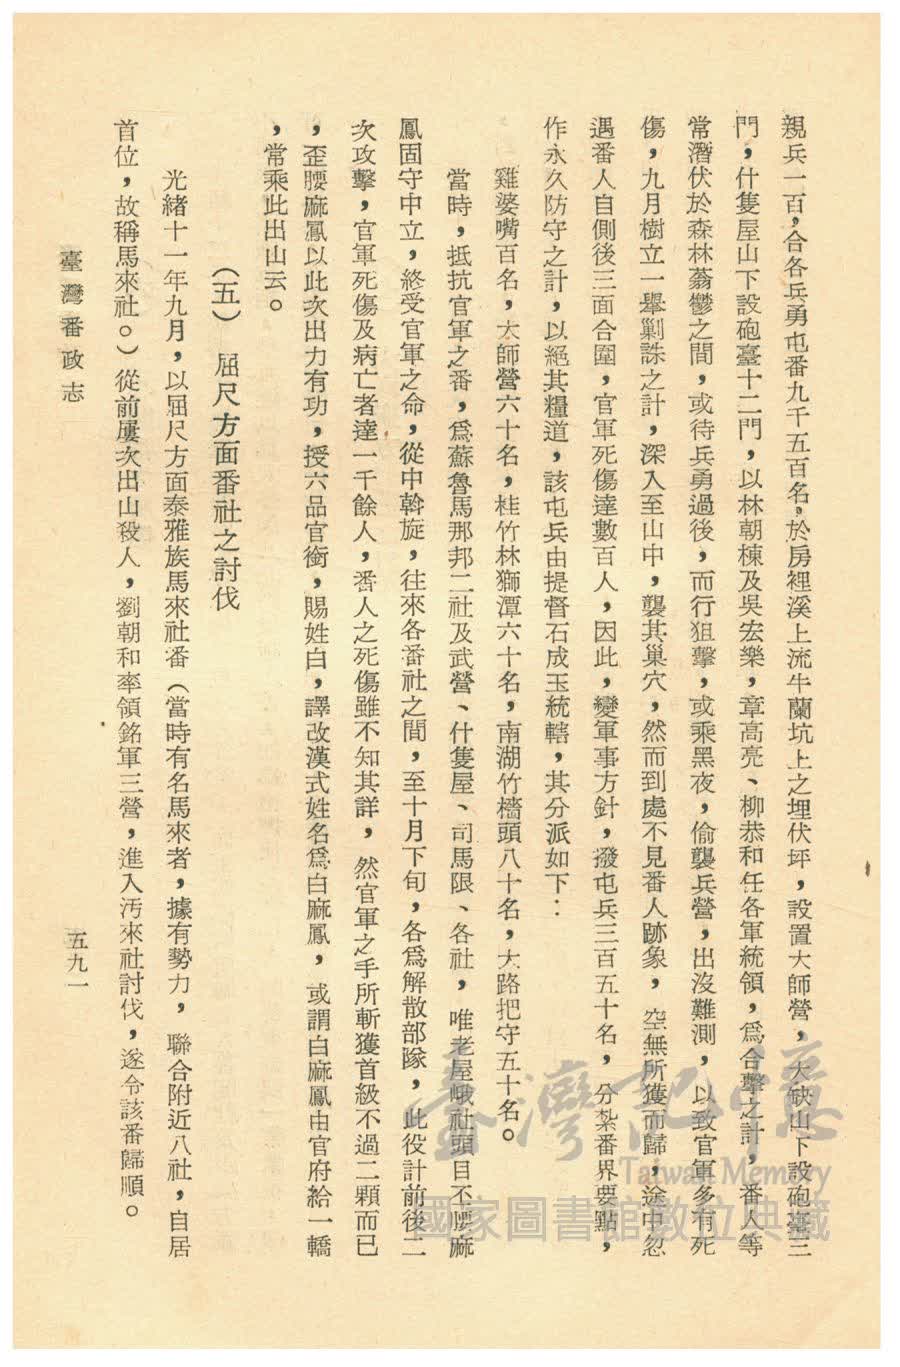 親兵一百，合各兵勇屯番九千五百名，於房裡溪上流牛蘭坑上之埋伏坪，設置大師營，大缺山下設砲臺三
門，什隻屋山下設砲臺十二門，以林朝棟及吳宏樂，章高亮、柳恭和任各軍統領，爲合擊之計，番人等
常潛伏於森林蓊鬱之間，或待兵勇過後，而行狙擊，或乘黑夜，偷襲兵營，出沒難測，以致官軍多有死
傷，九月樹立一舉剿誅之計，深入至山中，襲其巢穴，然而到處不見番人跡象，空無所獲而歸，途中忽
遇番人自側後三面合圍，官軍死傷達數百人，因此，變軍事方針，撥屯兵三百五十名，分紮番界要點，
作永久防守之計，以絕其糧道，該屯兵由提督石成玉統轄，其分派如下：
雞婆嘴百名，大師營六十名，桂竹林獅潭六十名，南湖竹檣頭八十名，大路把守五十名。
當時，抵抗官軍之番，爲蘇魯馬那邦二社及武營、什隻屋、司馬限、各社，唯老屋峨社頭目丕腰麻
鳳固守中立，終受官軍之命，從中斡旋，往來各番社之間，至十月下旬，各爲解散部隊，此役計前後二
次攻擊，官軍死傷及病亡者達一千餘人，番人之死傷雖不知其詳，然官軍之手所斬獲首級不過二顆而已
，歪腰麻鳳以此次出力有功，授六品官銜，賜姓白，譯改漢式姓名爲白麻鳳，或謂白麻鳳由官府給一轎
，常乘此出山云。
（五） 屈尺方面番社之討伐
光緒十一年九月，以屈尺方面泰雅族馬來社番（當時有名馬來者，據有勢力，聯合附近八社，自居
首位，故稱馬來社。）從前屢次出山殺人，劉朝和率領銘軍三營，進入汚來社討伐，遂令該番歸順。
臺灣番政志
五九一
臺灣記憶
Taiwan Memory
國家圖書館數位典藏